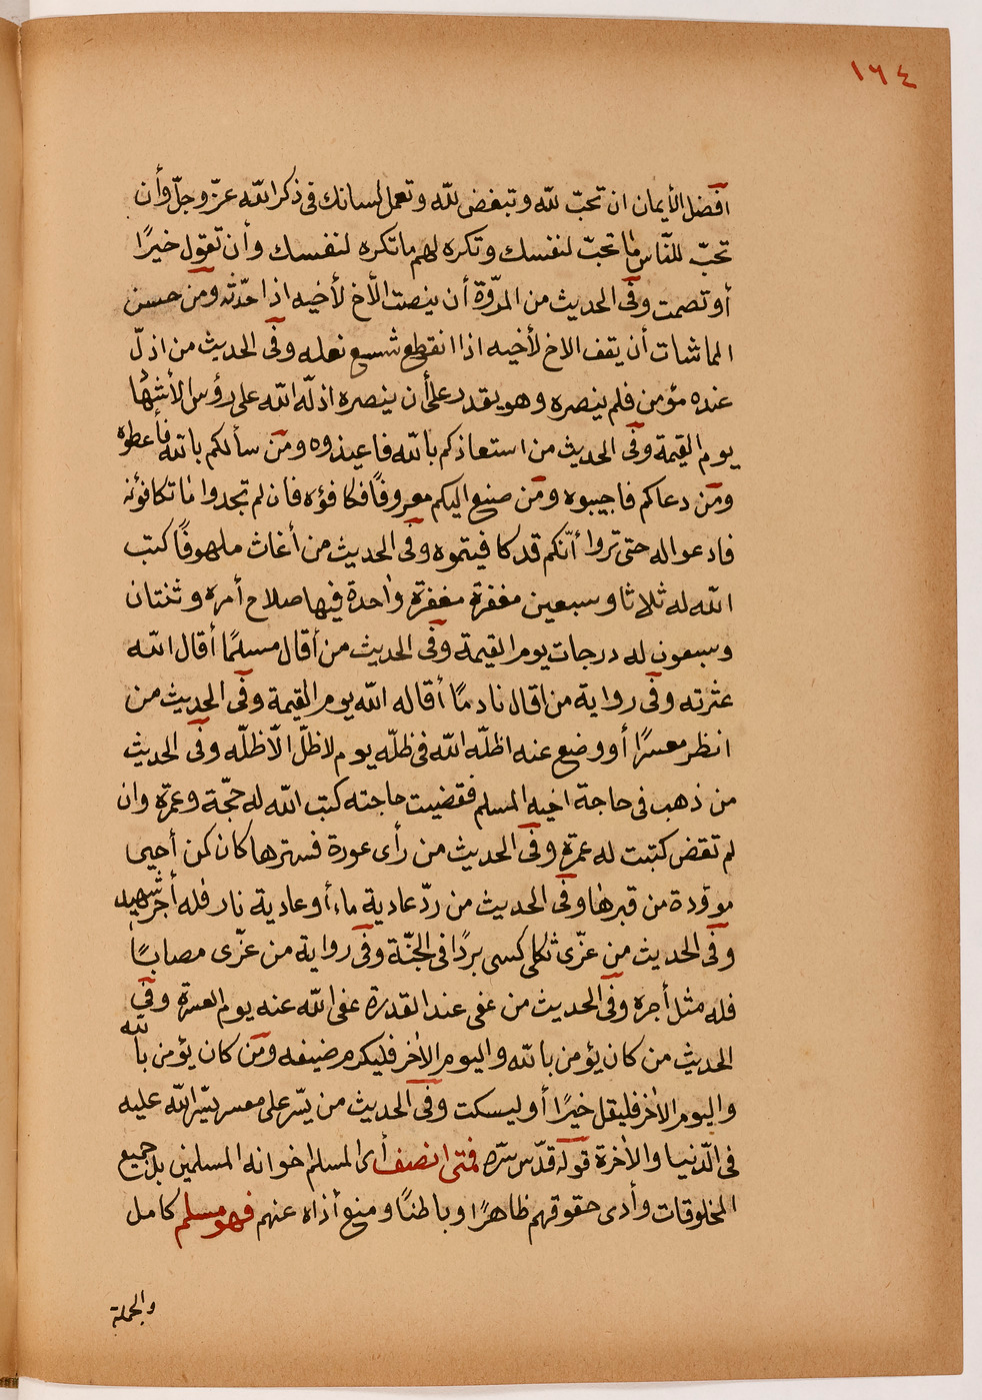 ١٦٤
افضل الأيمان ان تحبّ للّه وتبغض للّه وتعمل لسانك فى ذكر اللّه عزّ وجلّ وأن
تحبّ للنّاس ما تحبّ لنفسك وتكره لهم ما تكره لنفسك وأن تقول خيرًا
أو تصمت وفى الحديث من المروّة أن ينصت الأخ لأخيه اذا حدّثه ومن حسن
الماشات أن يقف الاخ لأخيه اذا انقطع شسع نعله وفى الحديث من اذلّ
عنده مؤمن فلم ينصره وهو يقدر على أن ينصره اذلّه اللّه على رؤس الأشهاد
يوم القيمة وفى الحديث من استعاذكم باللّه فاعيذوه ومن سألكم باللّه فأعطوه
ومن دعاكم فاجيبوه ومن صنع اليكم معروفًا فكافؤه فان لم تجدوا ما تكافؤنه
فادعوا له حتى تروا أنّكم قد كافيتموه وفى الحديث من أغاث ملهوفًا كتب
اللّه له ثلاثا وسبعين مغفرة مغفرة واحدة فيها صلاح أمره وثنتان
وسبعون له درجات يوم القيمة وفى الحديث من أقال مسلمًا أقال اللّه
عثرته وفى رواية من اقال نادمًا أقاله اللّه يوم القيمة وفى الحديث من
انظر معسرًا أو وضع عنه اظلّه اللّه فى ظلّه يوم لا ظلّ الّا ظلّه وفى الحديث
من ذهب فى حاجة اخيه المسلم فقضيت حاجته كتب اللّه له حجّة وعمرة وان
لم تقض كتبت له عمرة وفى الحديث من رأى عورة فسترها كان كمن أحيى
موؤدة من قبرها وفى الحديث من ردّ عادية ماء أو عادية نار فله أجر شهيد
وفى الحديث من عزّى ثكلى كسى بردًا فى الجنّة وفى رواية من عزّى مصابًا
فله مثل أجره وفى الحديث من عفى عند القدرة عفى اللّه عنه يوم العسرة وفى
الحديث من كان يؤمن باللّه واليوم الأخر فليكرم ضيفه ومن كان يؤمن باللّه
واليوم الأخر فليقل خيرًا أو ليسكت وفى الحديث من يسّر على معسر يسّر اللّه عليه
فى الدّنيا والأخرة قوله قدّس سّره فمتى انصف أى المسلم اخوانه المسلمين بل جميع
المخلوقات وأدى حقوقهم ظاهرًا وباطنًا ومنع أذاه عنهم فهو مسلم كامل
والجملة